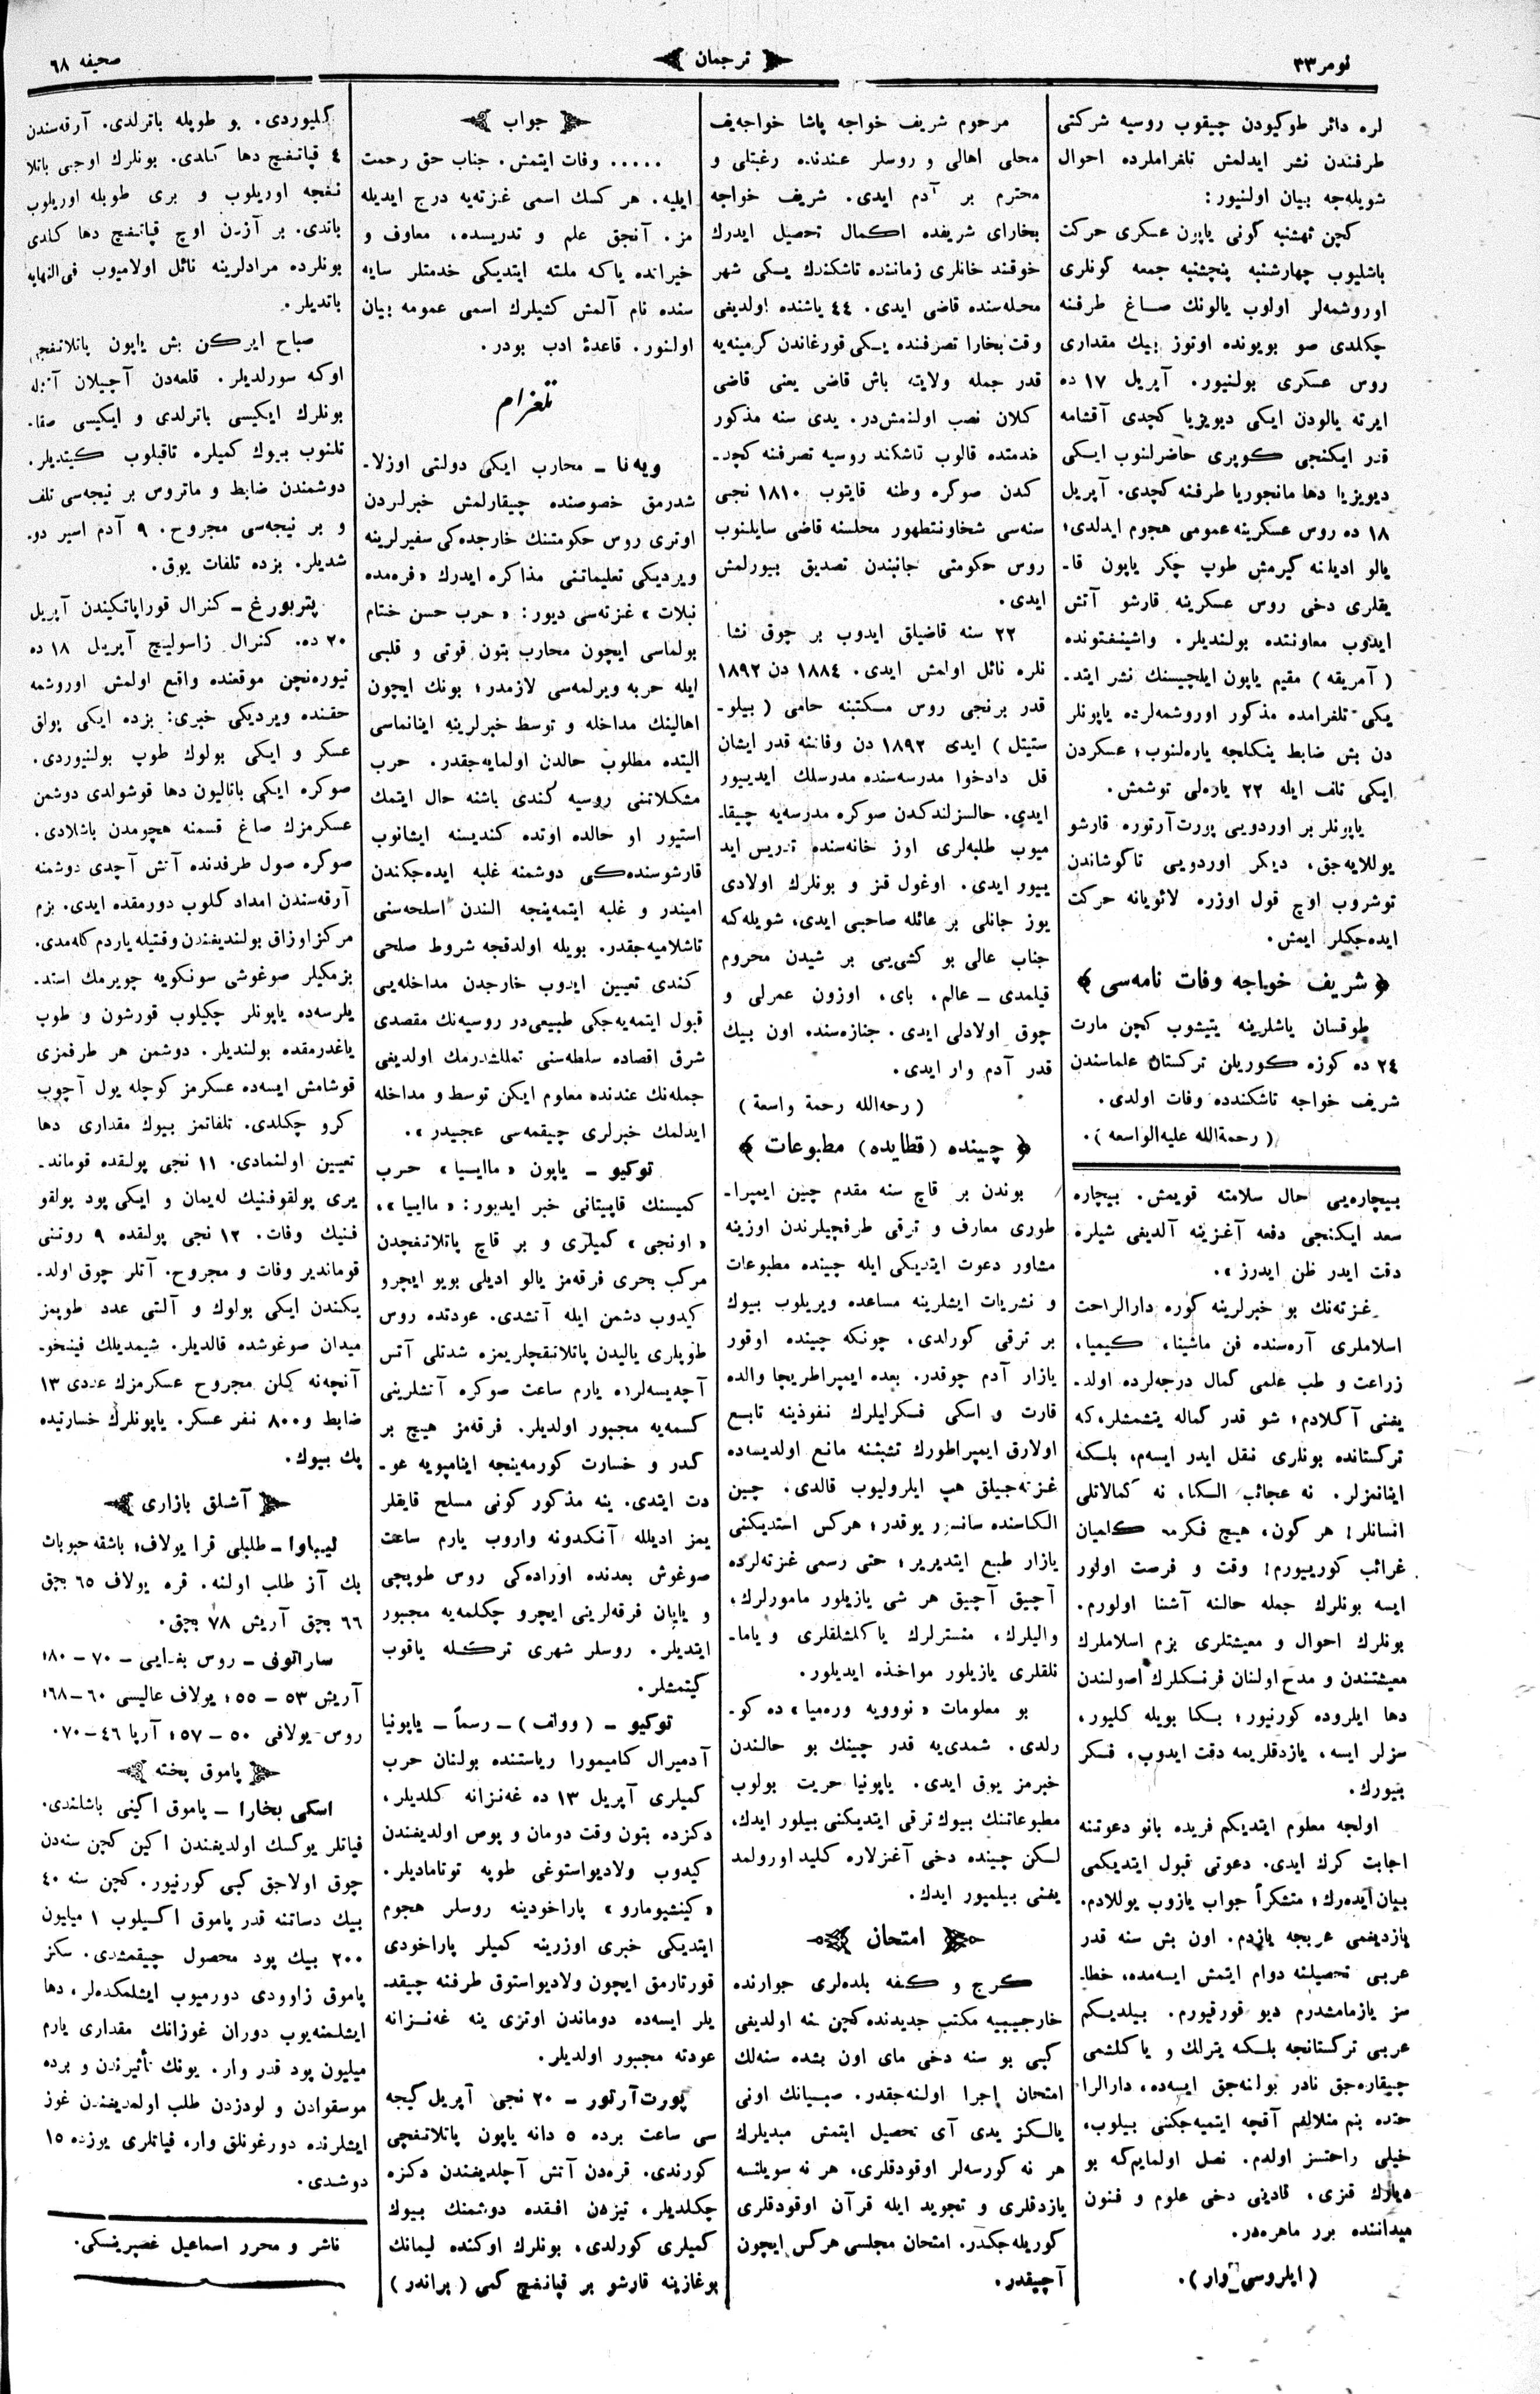 نومر ٣٣
ترجمان
صحيفه ٦٨
لره دائر طوكيودن چيقوب روسيه شركتی
طرفندن نشر ايدلمش تلغراملرده احوال
شويله‌جه بيان اولنيور:
كچن ئهشنبه كونی ياپون عسكری حركت
باشليوب چهارشنبه پنچشنبه جمعه كونلری
اوروشمه‌لر اولوب يالونك صاغ طرفنه
چكلدی صو بويونده اوتوز بيك مقداری
روس عسكری بولنيور. آپريل ١٧ ده
ايرته يالودن ايكی ديويزيا كچدی آقشامه
قدر ايكنجی كوپری حاضرلنوب ايكی
ديويزيا دها مانجوريا طرفنه كچدی. آپريل
١٨ ده روس عسكرينه عمومی هجوم ايدلدی؛
يالو اديلنه كيرمش طوپ چكر ياپون قا-
يقلری دخی روس عسكرينه قارشو آتش
ايدوب معاونتده بولنديلر. واشينغتونده
( آمريقه ) مقيم ياپون ايلچيسنك نشر ايتد-
يكی تلغرامده مذكور اوروشمه‌لرده ياپونلر
دن بش ضابط ينكلجه ياره‌لنوب؛ عسكردن
ايكی تلف ايله ٢٢ ياره‌لی توشمش.
ياپونلر بر اوردويی پورت آرتوره قارشو
يوللايه‌جق، ديكر اوردويی تاكوشاندن
توشروب اوچ قول اوزره لائويانه حركت
ايده‌جكلر ايمش.
﴿ شريف خواجه وفات نامه‌سی ﴾
طوقسان ياشلرينه يتيشوب كچن مارت
٢٤ ده كوزه كوريلن تركستان علماسندن
شريف خواجه تاشكندده وفات اولدی.
( رحمة‌الله عليه‌الواسعه ).
بيچاره‌يی حال سلامته قويمش. بيچاره
سعد ايكنجی دفعه آغزينه آلديغی شيلره
دقت ايدر ظن ايدرز ».
غزته‌نك بو خبرلرينه كوره دارالراحت
اسلاملری آره‌سنده فن ماشينا، كيميا،
زراعت و طب علمی كمال درجه‌لرده اولد-
يغنی آكلادم؛ شو قدر كماله يتشمشلر، كه
تركستانده بونلری نقل ايدر ايسه‌م، بلكه
اينانمزلر. نه عجائب الكا، نه كمالاتلی
انسانلر! هر كون، هيچ فكرمه كلميان
غرائب كوريیورم! وقت و فرصت اولور
ايسه بونلرك جمله حالنه آشنا اولورم.
بونلرك احوال و معيشتلری بزم اسلاملرك
معيشتندن و مدح اولنان فرنكلرك اصولندن
دها ايلروده كورنيور؛ بكا بويله كليور،
سزلر ايسه، يازدقلريمه دقت ايدوب، فكر
بنيورك.
اولجه معلوم ايتديكم فريده بانو دعوتنه
اجابت كرك ايدی. دعوتی قبول ايتديكمی
بيان ايده‌رك؛ متشكراً جواب يازوب يوللادم.
يازديغمی عربجه يازدم. اون بش سنه قدر
عربی تحصيلنه دوام ايتمش ايسه‌مده، خطا-
سز يازمامشدرم ديو قورقيورم. بيلديكم
عربی تركستانجه بلكه يترلك و ياكلشمی
چيقاره‌جق نادر بولنه‌جق ايسه‌ده، دارالرا-
حتده بنم مثلالغم آقچه ايتميه‌جكنی بيلوب،
خيلی راحتسز اولدم. نصل اولمايم كه بو
ديارك قنزی، قادينی دخی علوم و فنون
ميداننده برر ماهره‌در.
( ايلروسی وار ).
مرحوم شريف خواجه پاشا خواجه‌يف
محلی اهالی و روسلر عندنده رغبتلی و
محترم بر آدم ايدی. شريف خواجه
بخارای شريفده اكمال تحصيل ايدرك
خوقند خانلری زماننده تاشكندك يسكی شهر
محله‌سنده قاضی ايدی. ٤٤ ياشنده اولديغی
وقت بخارا تصرفنده يسكی قورغاندن كرمينه‌يه
قدر جمله ولايته باش قاضی يعنی قاضی
كلان نصب اولنمش‌در. يدی سنه مذكور
خدمتده قالوب تاشكند روسيه تصرفنه كچد-
كدن صوكره وطنه قايتوب ١٨١٠ نجی
سنه‌سی شخاونتطهور محلسنه قاضی سايلنوب
روس حكومتی جانبندن تصديق بيورلمش
ايدی.
٢٢ سنه قاضيلق ايدوب بر چوق نشا-
نلره نائل اولمش ايدی. ١٨٨٤ دن ١٨٩٢
قدر برنجی روس مكتبنه حامی ( بيلو-
ستيتل ) ايدی ١٨٩٢ دن وفاتنه قدر ايشان
قل دادخوا مدرسه‌سنده مدرسلك ايدييور
ايدی. حالسزلندكدن صوكره مدرسه‌يه چيقا-
ميوب طلبه‌لری اوز خانه‌سنده تدريس ايد
ييور ايدی. اوغول قنز و بونلرك اولادی
يوز جانلی بر عائله صاحبی ايدی، شويله‌كه
جناب عالی بو كشی‌يی بر شيدن محروم
قيلمدی ــ عالم، بای، اوزون عمرلی و
چوق اولادلی ايدی. جنازه‌سنده اون بيك
قدر آدم وار ايدی.
( رحه‌الله رحمة واسعة )
﴿ چينده (قطايده) مطبوعات ﴾
بوندن بر قاچ سنه مقدم چين ايمپرا-
طوری معارف و ترقی طرفچيلرندن اوزينه
مشاور دعوت ايتديكی ايله چينده مطبوعات
و نشريات ايشلرينه مساعده ويريلوب بيوك
بر ترقی كورلدی، چونكه چينده اوقور
يازار آدم چوقدر. بعده ايمپراطريچا والده
قارت و اسكی فكرليلرك نفوذينه تابع
اولارق ايمپراطورك تشبثنه مانع اولديسه‌ده
غزته‌جيلق هپ ايلروليوب قالدی. چين
الكاسنده سانسور يوقدر؛ هركس استديكنی
يازار طبع ايتديرير؛ حتی رسمی غزته‌لرده
آچيق آچيق هر شی يازيلور مامورلرك،
واليلرك، منسترلرك ياكلشلقلری و ياما-
نلقلری يازيلور مواخذه ايديلور.
بو معلومات « نوويه وره‌ميا » ده كو-
رلدی. شمدی‌يه قدر چينك بو حالندن
خبرمز يوق ايدی. ياپونيا حريت بولوب
مطبوعاتنك بيوك ترقی ايتديكنی بيلور ايدك،
لكن چينده دخی آغزلاره كليد اورولمد
يغنی بيلميور ايدك.
امتحان
كرج و كفه بلده‌لری جوارنده
خارجيبيه مكتب جديدنده كچن سنه اولديغی
كبی بو سنه دخی مای اون بشده سنه‌لك
امتحان اجرا اولنه‌جقدر. صبيانك اونی
يالكز يدی آی تحصيل ايتمش مبديلرك
هر نه كورسه‌لر اوقودقلری، هر نه سويلنسه
يازدقلری و تجويد ايله قرآن اوقودقلری
كوريله‌جكدر. امتحان مجلسی هركس ايچون
آچيقدر.
جواب
..... وفات ايتمش. جناب حق رحمت
ايليه. هر كسك اسمی غزته‌يه درج ايديله
مز. آنجق علم و تدريسده، معاوف و
خيرانده ياكه ملته ايتديكی خدمتلر سايه
سنده نام آلمش كشيلرك اسمی عمومه بيان
اولنور. قاعدۀ ادب بودر.
تلغرام
ويه‌نا ــ محارب ايكی دولتی اوزلا-
شدرمق خصوصنده چيقارلمش خبرلردن
اوتری روس حكومتنك خارجده‌كی سفيرلرينه
ويرديكی تعليماتنی مذاكره ايدرك « فره‌مده
نبلات » غزته‌سی ديور: « حرب حسن ختام
بولماسی ايچون محارب بتون قوتی و قلبی
ايله حربه ويرلمه‌سی لازمدر؛ بونك ايچون
اهالينك مداخله و توسط خبرلرينه اينانماسی
البتده مطلوب حالدن اولمايه‌جقدر. حرب
مشكلاتنی روسيه كندی باشنه حال ايتمك
استيور او حالده اوتده كنديسنه ايشانوب
قارشوسنده‌كی دوشمنه غلبه ايده‌جكندن
اميندر و غلبه ايتمه‌ينجه الندن اسلحه‌سنی
تاشلاميه‌جقدر. بويله اولدقجه شروط صلحی
كندی تعيين ايدوب خارجدن مداخله‌يی
قبول ايتمه‌يه‌جكی طبيعی‌در روسيه‌نك مقصدی
شرق اقصاده سلطه‌سنی تمللشدرمك اولديغی
جمله‌نك عندنده معلوم ايكن توسط و مداخله
ايدلمك خبرلری چيقمه‌سی عجيبدر ».
توكيو ــ ياپون « ماايسيا » حرب
كميسنك قاپيتانی خبر ايديور: « ماايبا »،
« اونجی » كميلری و بر قاچ پاتلانغچدن
مركب بحری فرقه‌مز يالو اديلی بويو ايچرو
كيدوب دشمن ايله آتشدی. عودتده روس
طوپلری ياليدن پاتلانغچلريمزه شدتلی آتس
آچديسه‌لرده يارم ساعت صوكره آتشلرينی
كسمه‌يه مجبور اولديلر. فرقه‌مز هيچ بر
كدر و خسارت كورمه‌ينجه اينامپويه عو-
دت ايتدی. ينه مذكور كونی مسلح قايقلر
يمز اديلله آنكدونه واروب يارم ساعت
صوغوش بعدنده اوراده‌كی روس طوپچی
و ياپان فرقه‌لرينی ايچرو چكلمه‌يه مجبور
ايتديلر. روسلر شهری تركله ياقوب
كيتمشلر.
توكيو ــ ( وواتف ) ــ رسماً ــ ياپونيا
آدميرال كاميمورا رياستنده بولنان حرب
كميلری آپريل ١٣ ده غه‌نزانه كلديلر،
دكزده بتون وقت دومان و پوص اولديغندن
كيدوب ولاديواستوغی طوپه توتاماديلر.
« كينشيومارو » پاراخودينه روسلر هجوم
ايتديكی خبری اوزرينه كميلر پاراخودی
قورتارمق ايچون ولاديواستوق طرفنه چيقد-
يلر ايسه‌ده دوماندن اوتری ينه غه‌نزانه
عودته مجبور اولديلر.
پورت آرتور ــ ٢٠ نجی آپريل كيجه
سی ساعت برده ٥ دانه ياپون پاتلانغچی
كورندی. قره‌دن آتش آچلديغندن دكزه
چكلديلر، تيزدن افقده دوشمنك بيوك
كميلری كورلدی، بونلرك اوكنده ليمانك
بوغازينه قارشو بر قپانغچ كمی ( براندر )
كليوردی. بو طوپله باترلدی. آرقه‌سندن
٤ قپانغچ دها كلدی. بونلرك اوچی پاتلا
نغچه اوريلوب و بری طوپله اوريلوب
باتدی. بر آزدن اوچ قپانغچ دها كلدی
بونلرده مرادلرينه نائل اولاميوب فی‌النهايه
باتديلر.
صباح ايركن بش ياپون پاتلانغچی
اوكه سورلديلر. قلعه‌دن آچيلان آتشله
بونلرك ايكيسی باترلدی و ايكيسی صقا-
تلنوب بيوك كميلره تاقيلوب كيتديلر.
دوشمندن ضابط و ماتروس بر نيجه‌سی تلف
و بر نيجه‌سی مجروح. ٩ آدم اسير دو-
شديلر. بزده تلفات يوق.
پتربورغ ــ كنرال قوراپاتكيندن آپريل
٢٠ ده. كنرال زاسوليچ آپريل ١٨ ده
تيوره‌نچن موقعنده واقع اولمش اوروشمه
حقنده ويرديكی خبری: بزده ايكی پولق
عسكر و ايكی بولوك طوپ بولنيوردی.
صوكره ايكی باتاليون دها قوشولدی دوشمن
عسكرمزك صاغ قسمنه هجومدن باشلادی.
صوكره صول طرفدنده آتش آچدی دوشمنه
آرقه‌سندن امداد كلوب دورمقده ايدی. بزم
مركز اوزاق بولنديغندن وقتيله ياردم كله‌مدی.
بزمكيلر صوغوشی سونكويه چويرمك استد-
يلرسه‌ده ياپونلر چكيلوب قورشون و طوپ
ياغدرمقده بولنديلر. دوشمن هر طرفمزی
قوشامش ايسه‌ده عسكرمز كوچله يول آچوب
كرو چكلدی. تلفاتمز بيوك مقداری دها
تعيين اولنمادی. ١١ نجی پولقده قوماند-
يری پولقوفنيك له‌يمان و ايكی پود پولقو
فنيك وفات. ١٢ نجی پولقده ٩ روتنی
قوماندير وفات و مجروح. آتلر چوق اولد-
يكندن ايكی بولوك و آلتی عدد طوپمز
ميدان صوغوشده قالديلر. شيمديلك فينخو-
آنچه‌نه كلن مجروح عسكرمزك عددی ١٣
ضابط و ٨٠٠ نفر عسكر. ياپونلرك خسارتيده
پك بيوك.
آشلق بازاری
ليباوا ــ طلبلی قرا يولاف؛ باشقه حبوبات
پك آز طلب اولنه. قره يولاف ٦٥ چق
٦٦ چق آريش ٧٨ چق.
ساراتوف ــ روس بغدایی ــ ٧٠ ــ ٨٠؛
آريش ٥٣ ــ ٥٥؛ يولاف عاليسی ٦٠ ــ ٦٨؛
روس يولافی ٥٠ ــ ٥٧؛ آرپا ٤٦ ــ ٧٠.
پاموق پخته
اسكی بخارا ــ پاموق اكينی باشلندی.
قياتلر يوكسك اولديغندن اكين كچن سنه‌دن
چوق اولاجق كبی كورنيور. كچن سنه ٤٠
بيك دساتنه قدر پاموق اكيلوب ١ ميليون
٢٠٠ بيك پود محصول چيقمشدی. سكز
پاموق زاوودی دورميوب ايشلمكده‌لر، دها
ايشلمنه‌يوب دوران غوزانك مقداری يارم
ميليون پود قدر وار. يونك تأثيرندن و برده
موسقوادن و لودزدن طلب اولمديغندن غوز
ايشلرنده دورغونلق وار، قياتلری يوزده ١٥
دوشدی.
ناشر و محرر اسماعيل غصپرينسكی.